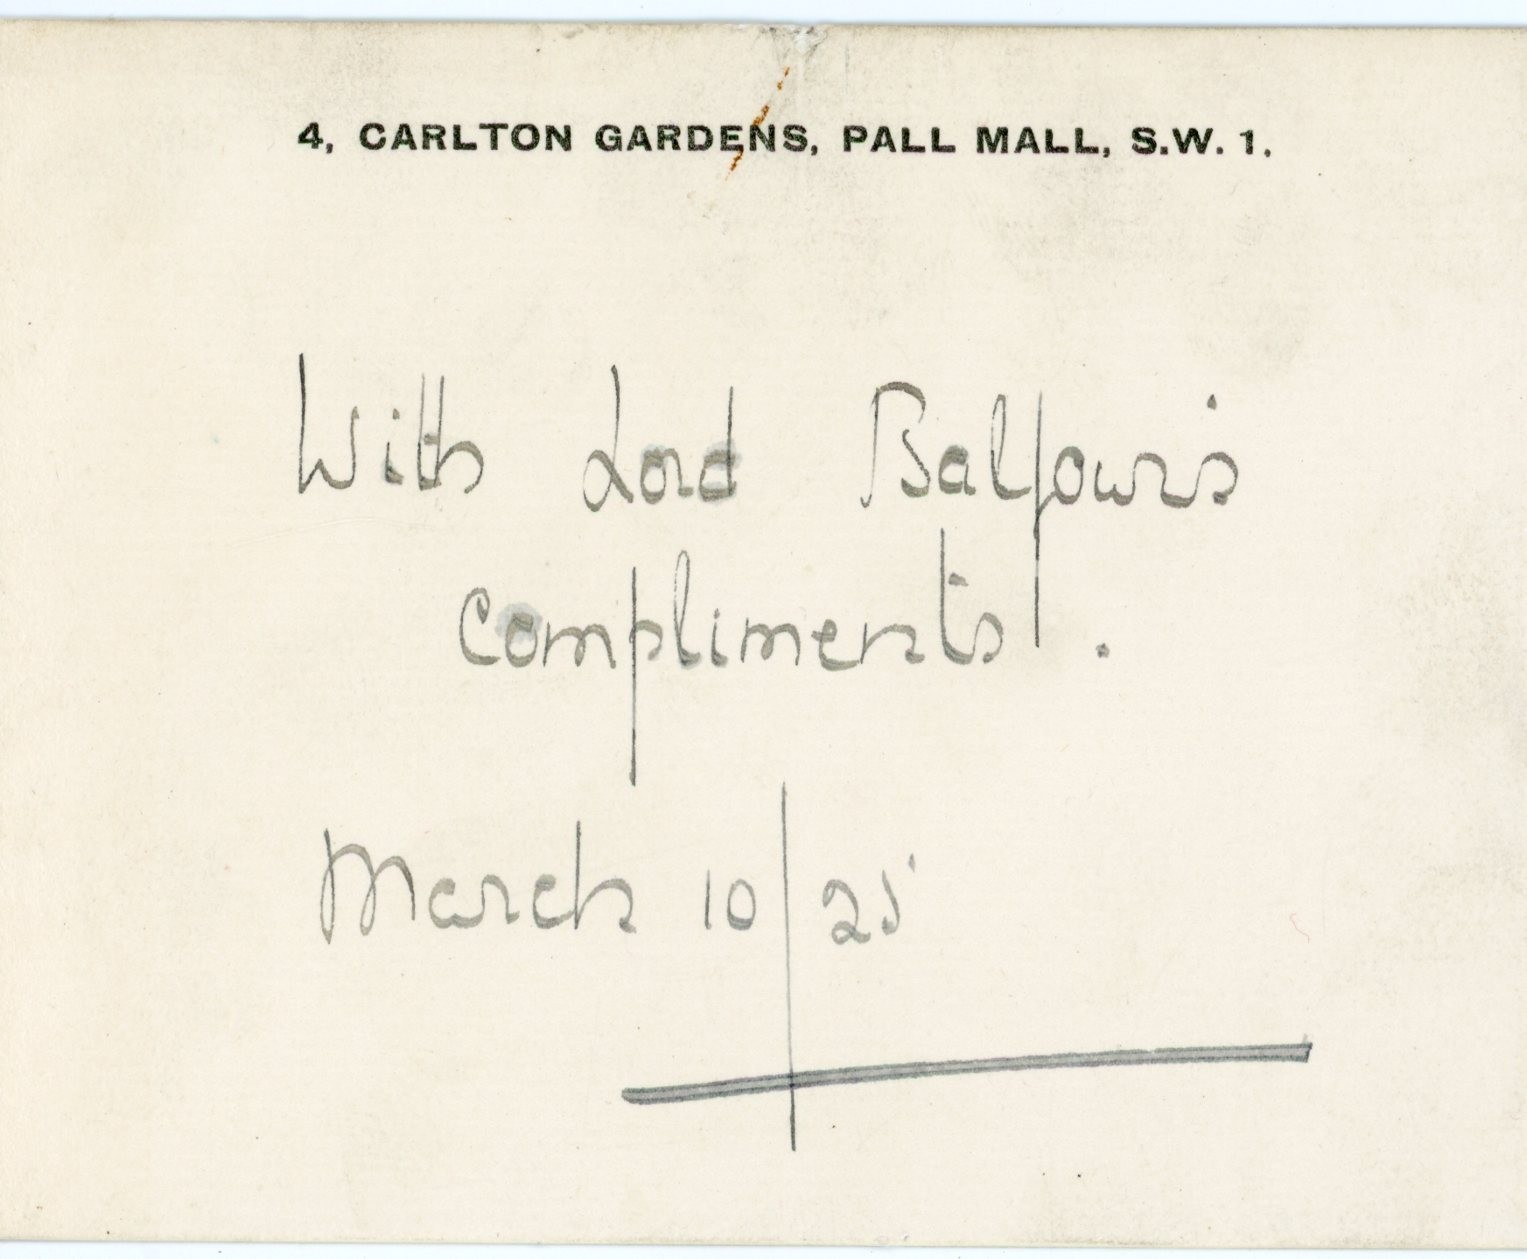 4, CARLTON GARDENS, PALL MALL, S.W. 1.
With Lord Balfour's
compliments.
March 10/25